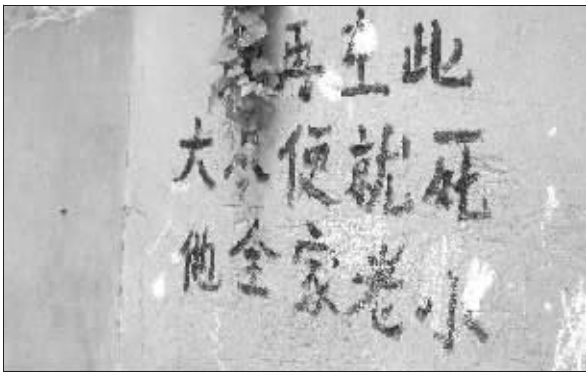 再在此
大小便就死
他全家老小